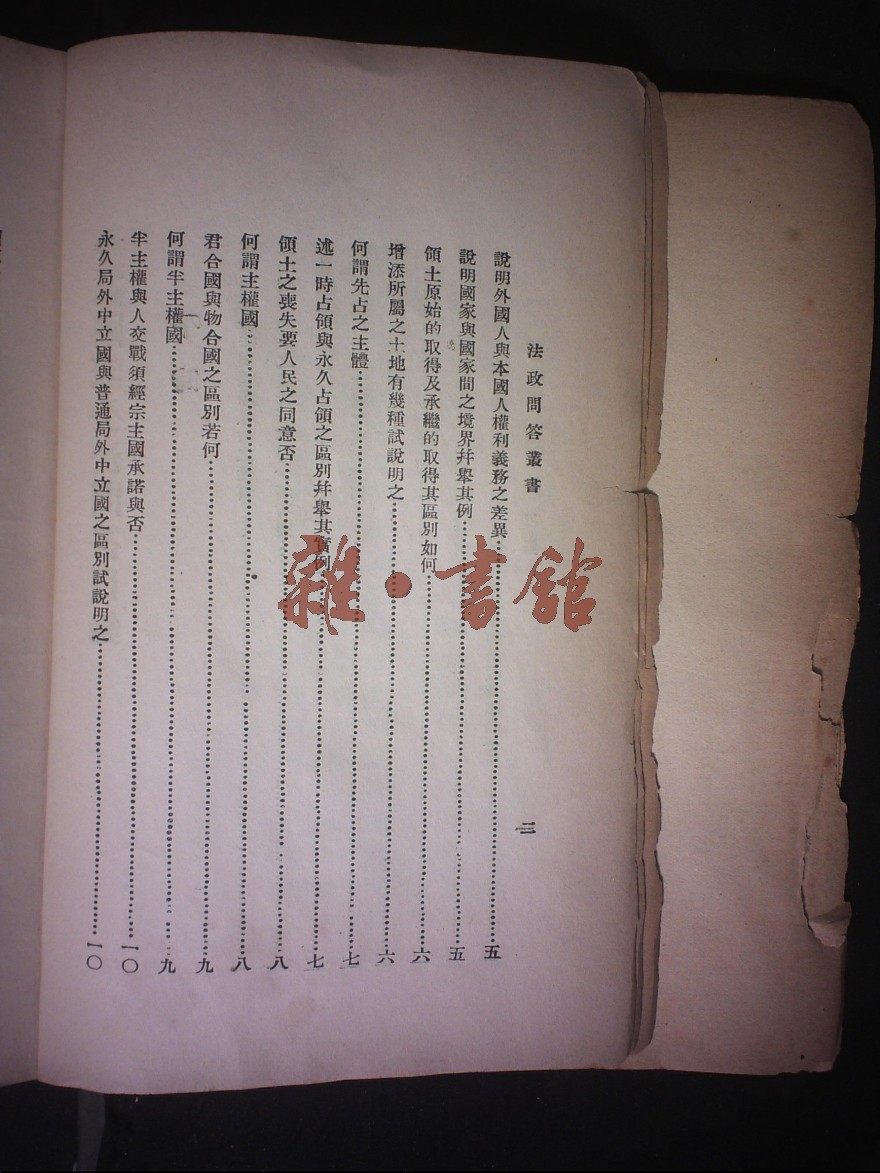 法政問答叢書
二
說明外國人與本國人權利義務之差異……五
說明國家與國家間之境界幷舉其例……五
領土原始的取得及承繼的取得其區別如何……六
增添所屬之土地有幾種試說明之……六
何謂先占之主體……七
述一時占領與永久占領之區別幷舉其實例……七
領土之喪失要人民之同意否……八
何謂主權國……八
君合國與物合國之區別若何……九
何謂半主權國……九
半主權與人交戰須經宗主國承諾與否……一〇
永久局外中立國與普通局外中立國之區別試說明之……一〇
雜·書館